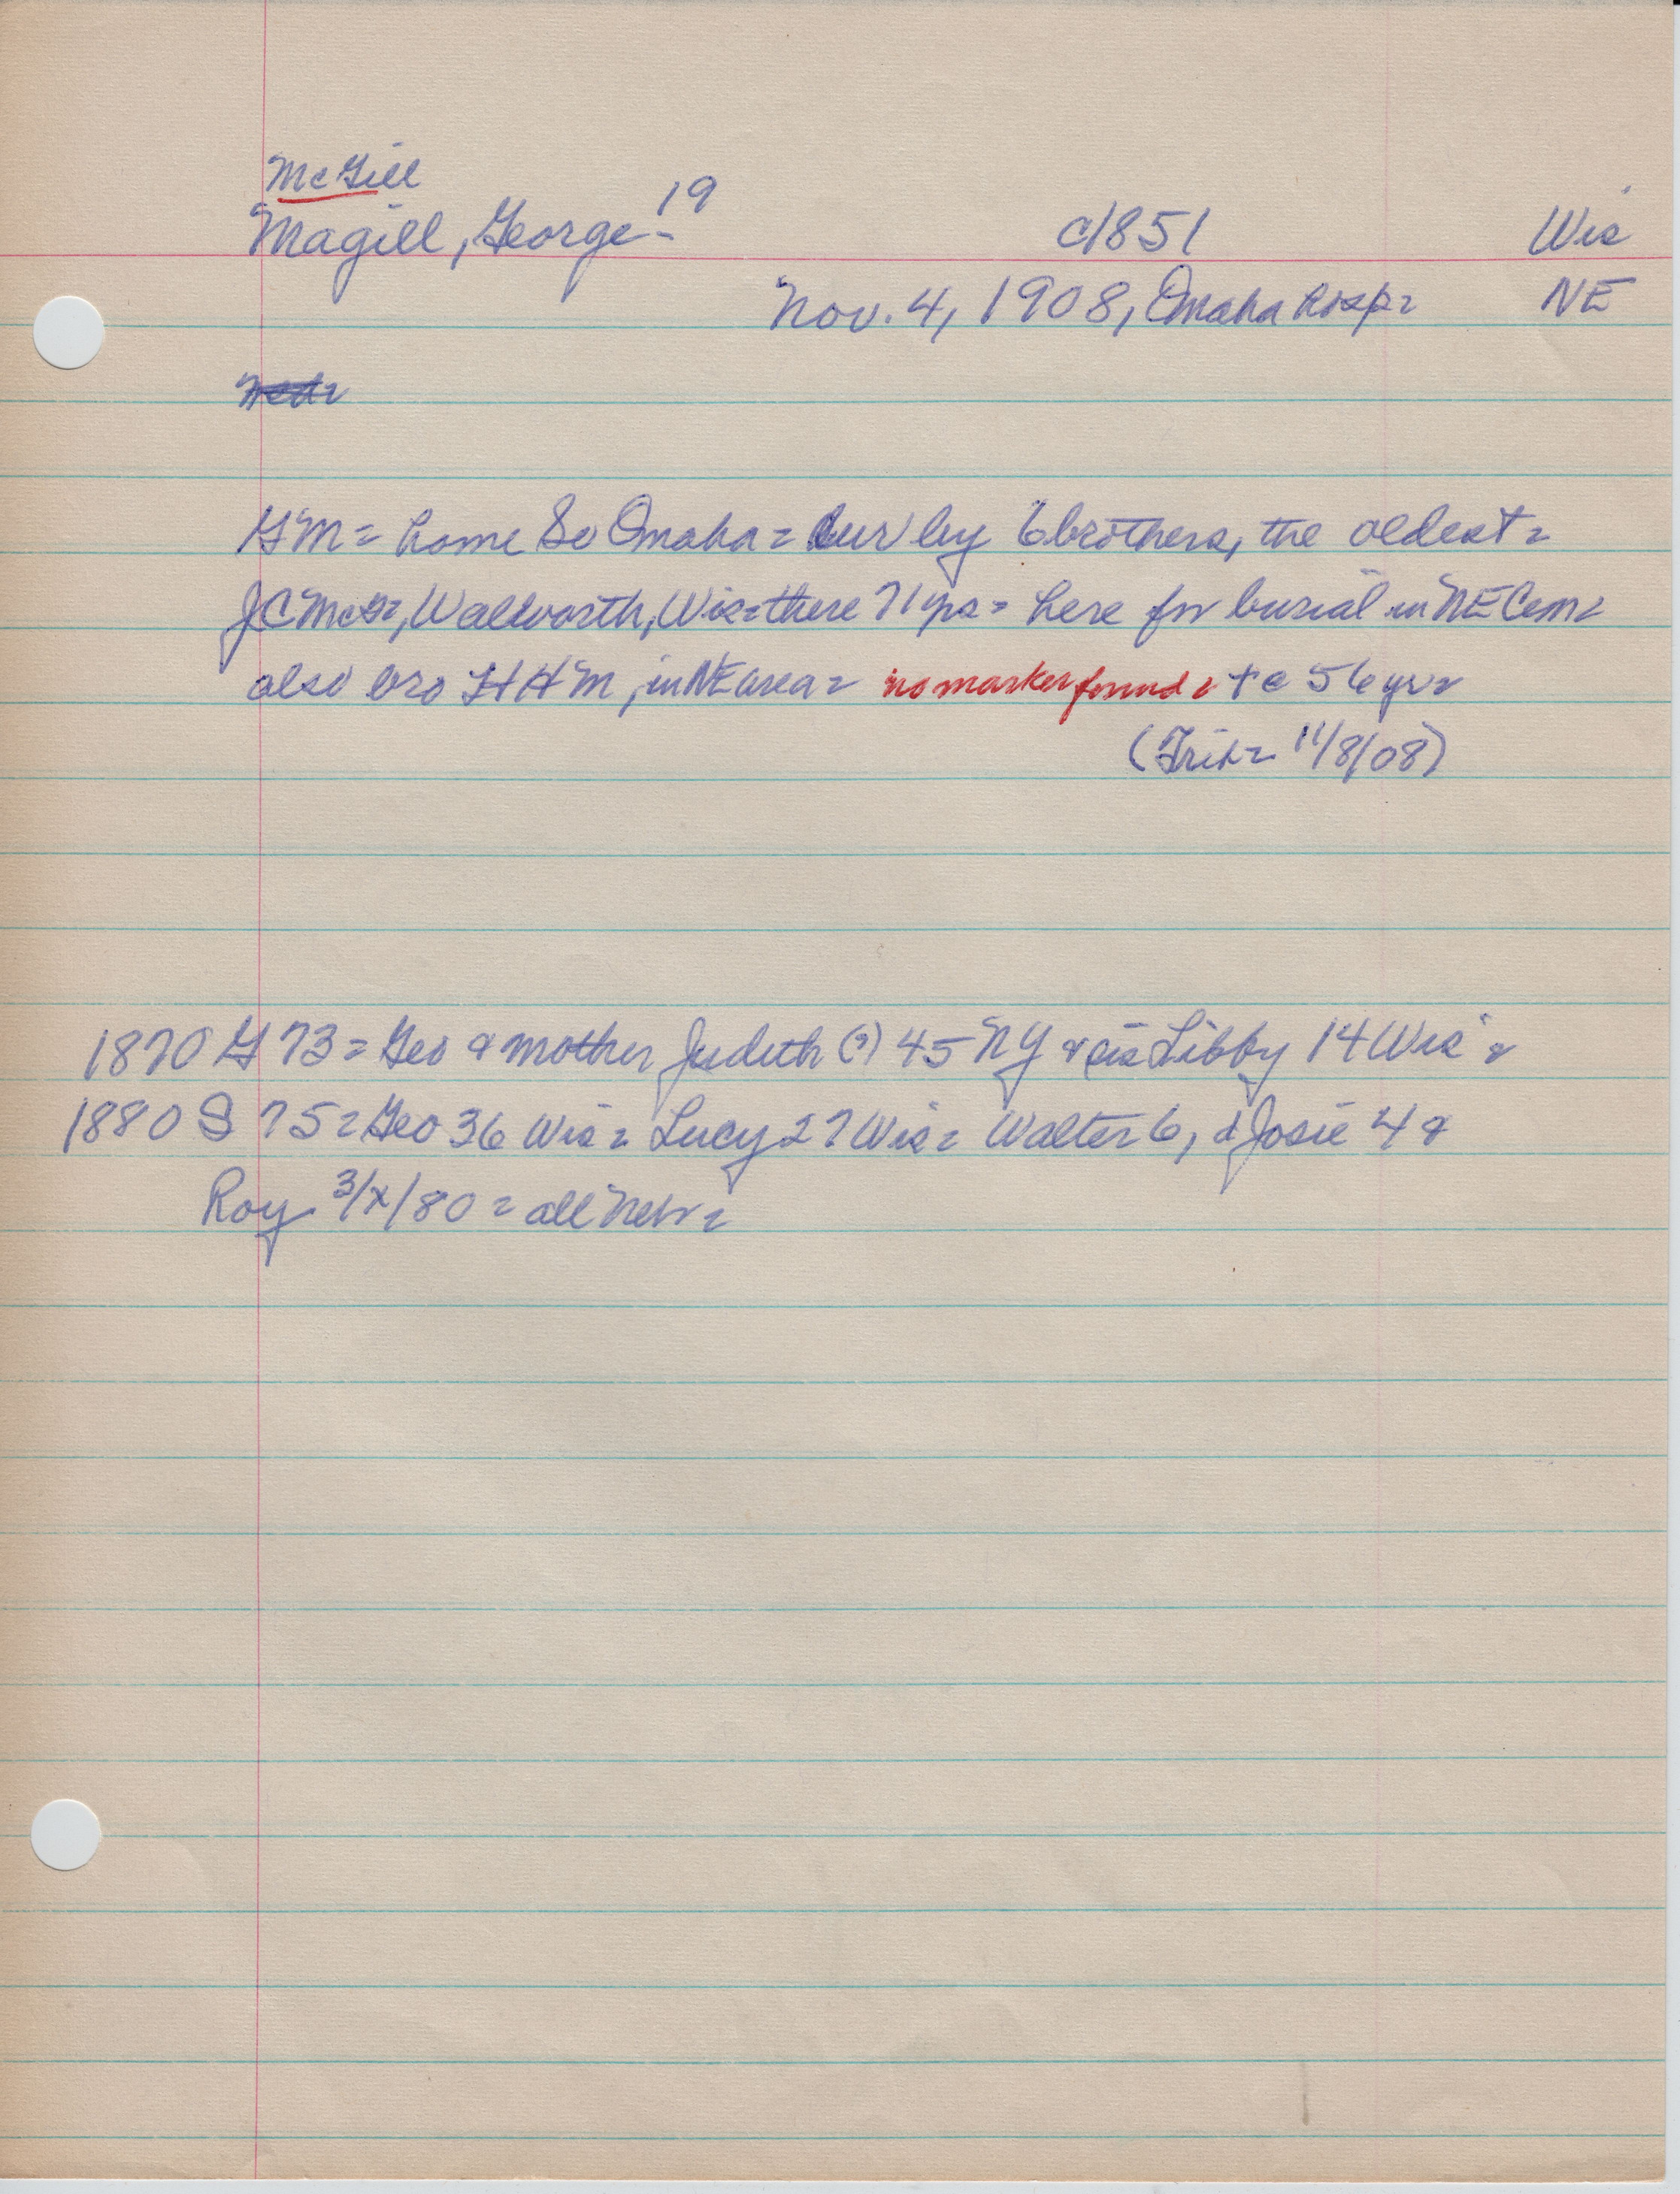 McGill
Magill, George - 19 c/1851 Wis
Nov. 4, 1908, Omaha hosp= NE
GM= home So Omaha= sur by 6 brothers, the oldest=
JC McG=, Walworth, Wis= there 71 yrs= here for burial in NE Cem=
also bro HHM, in NE area= no marker found= + @ 56 yrs=
(Trib= 11/8/08)
1870 G 73= Geo & mother Judith (?) 45 NY & sis Libby 14 Wis=
1880 S 75= Geo 36 Wis= Lucy 27 Wis= Walter 6, d Josie 4 &
Roy 3/x/80= all Nebr=